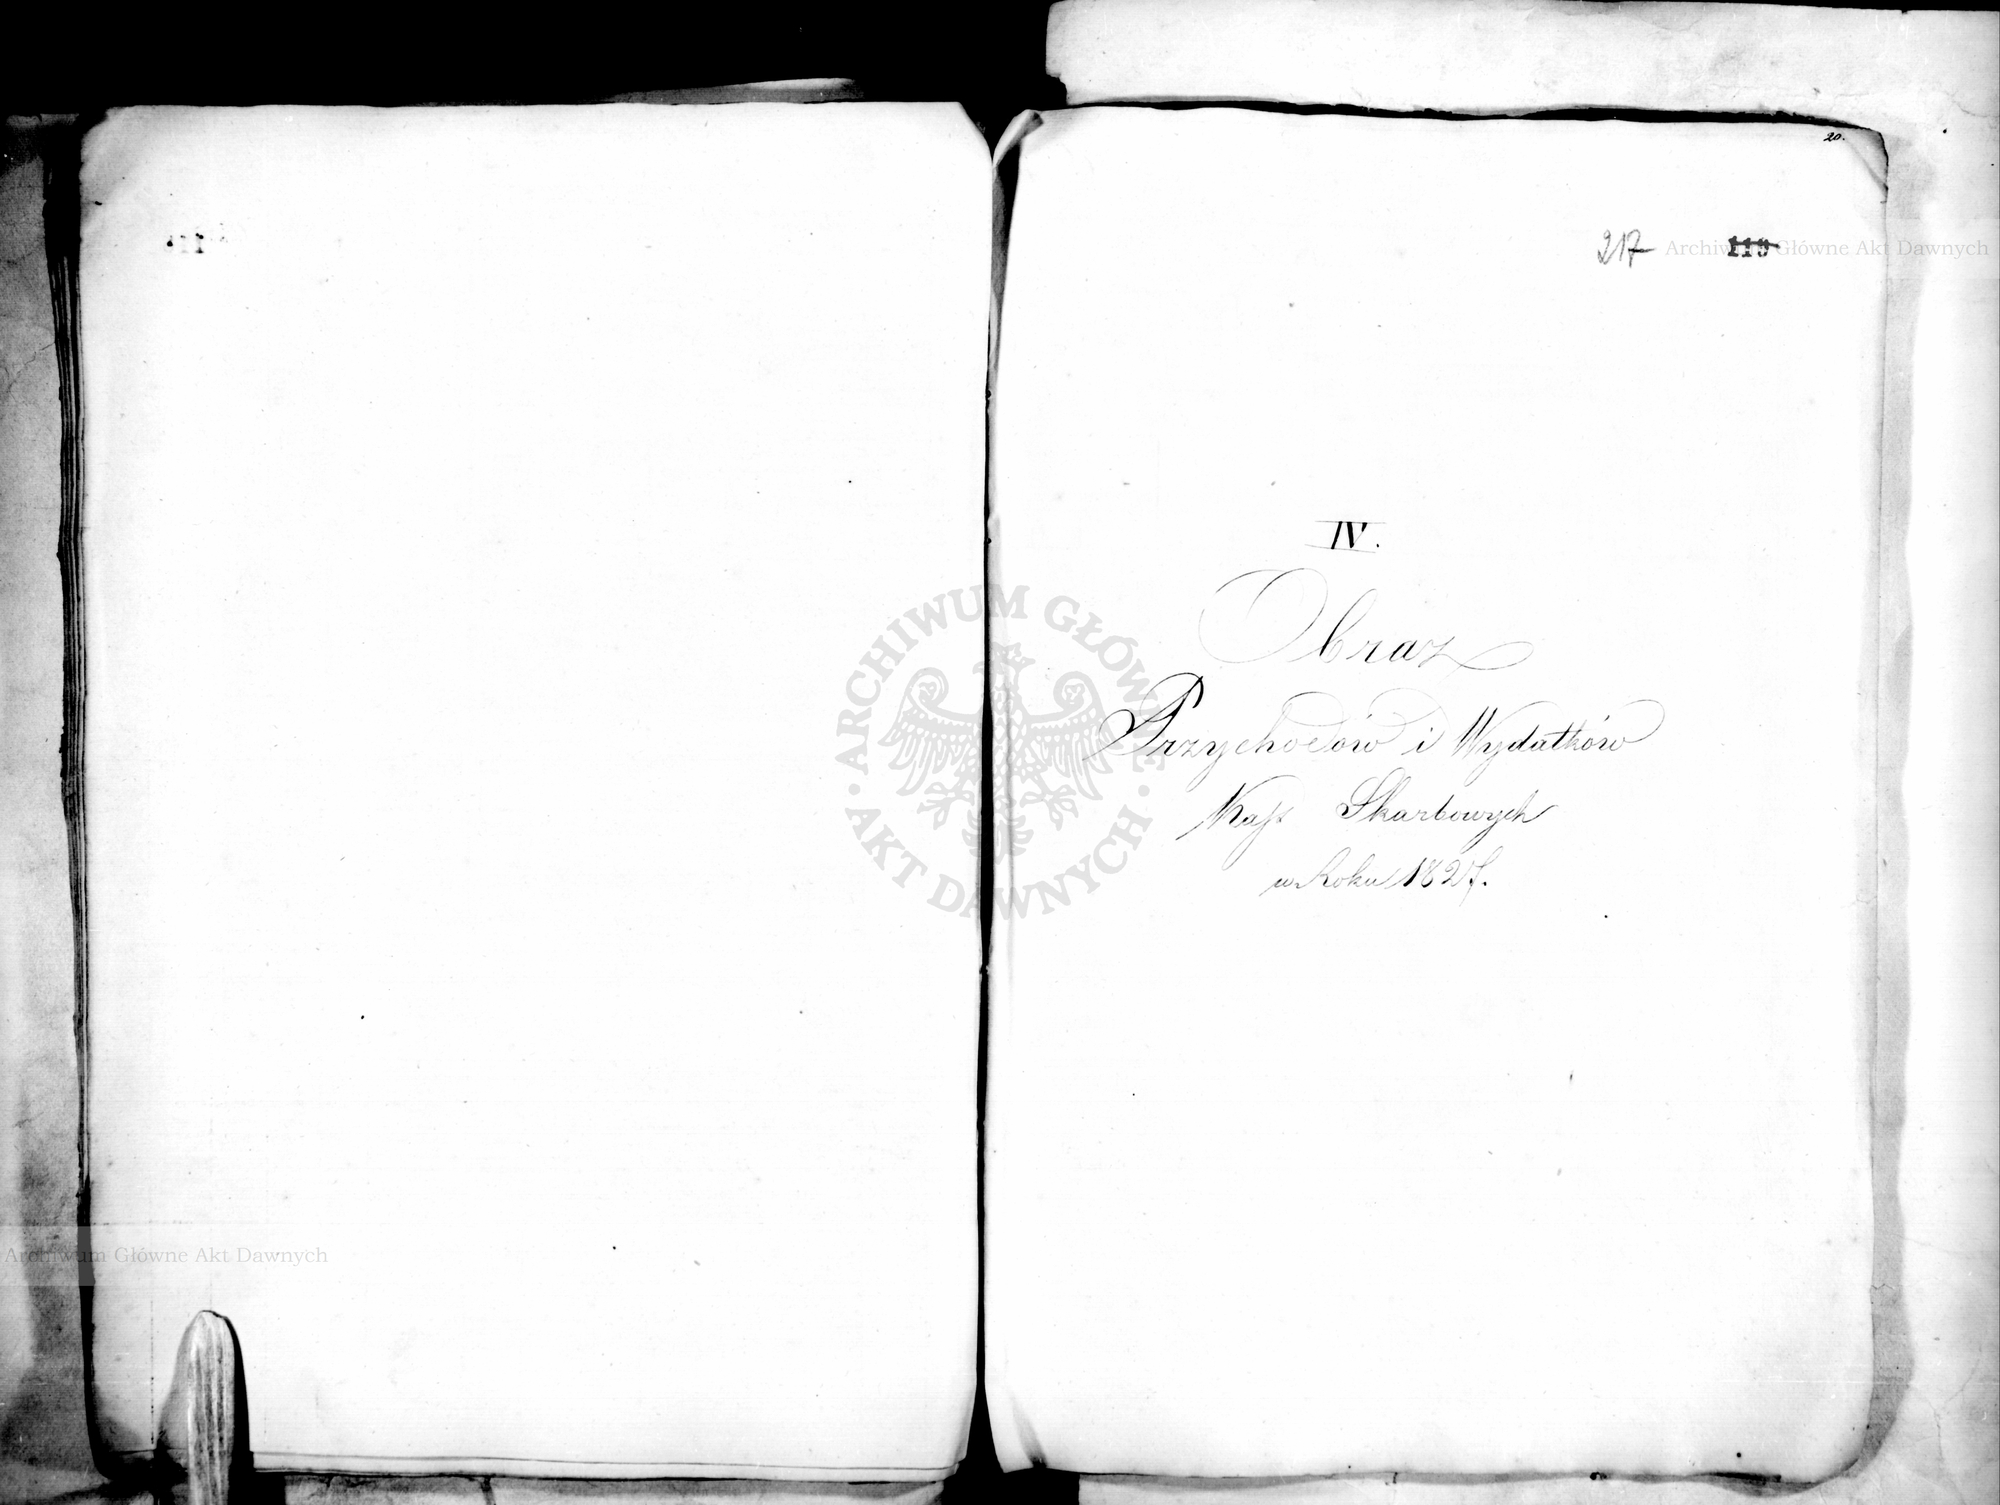 20.
217 119
IV.
Obraz
Przychodów i Wydatków
Kass Skarbowych
w Roku 1827.
Archiwum Główne Akt Dawnych
· ARCHIWUM GŁÓWNE · AKT DAWNYCH ·
Archiwum Główne Akt Dawnych